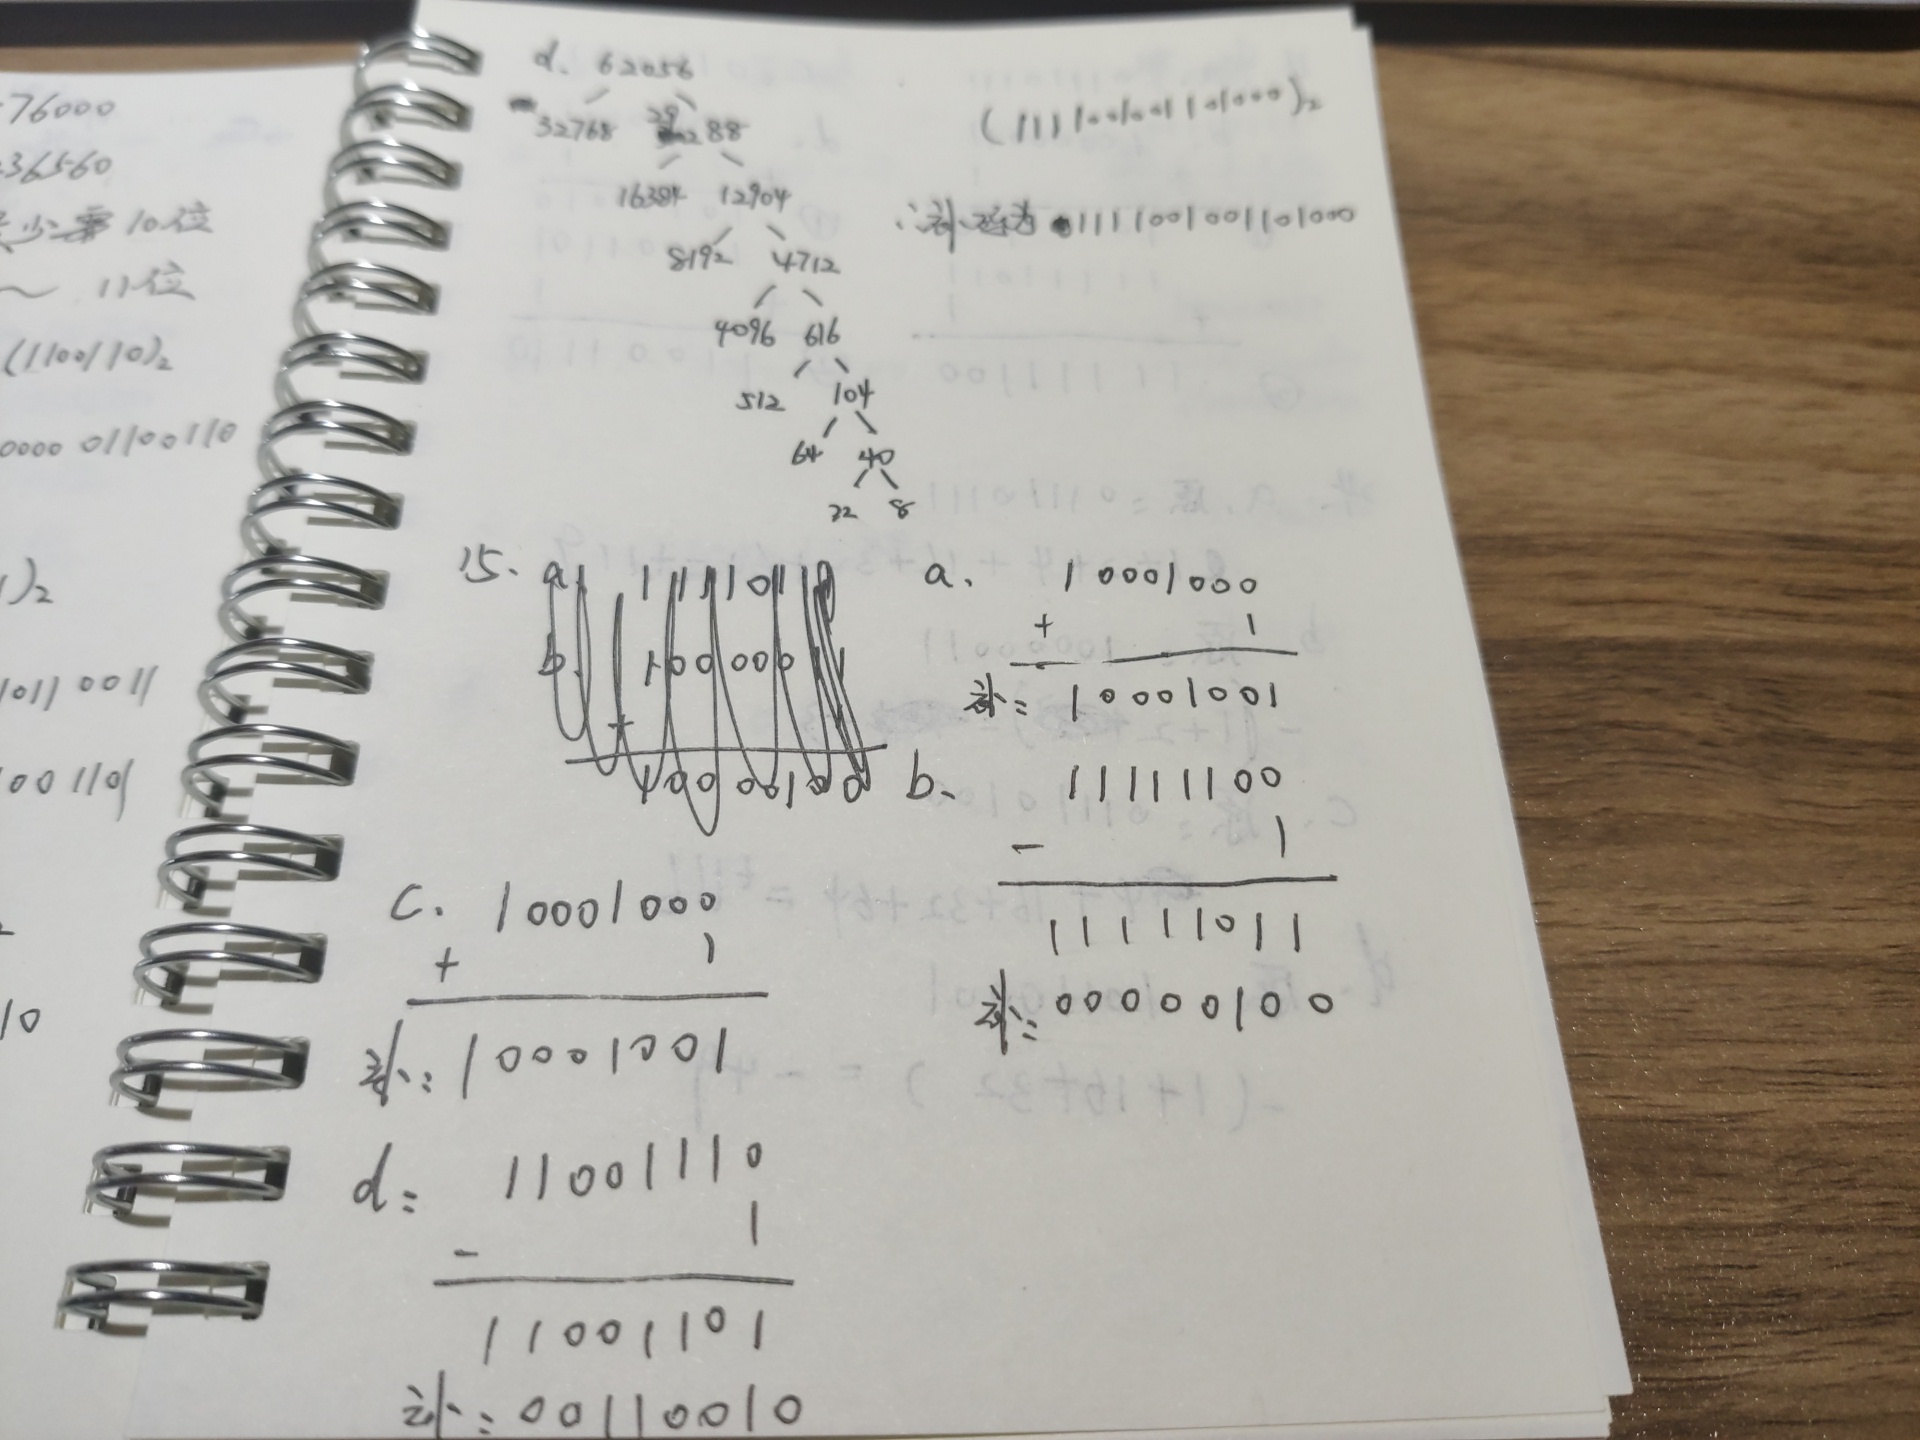 -76000
=36560
少需 10位
~ 11位
(1100110)₂
0000 01100110
1)₂
1011 0011
001101
10
d. 62056
32768 29288
16384 12904
8192 4712
4096 616
512 104
64 40
32 8
(1111001001101000)₂
∴补码为 1111001001101000
15.
a. 10001000
+ 1
补: 10001001
b. 11111100
- 1
11111011
补: 00000100
c. 10001000
+ 1
补: 10001001
d: 11001110
- 1
11001101
补: 00110010